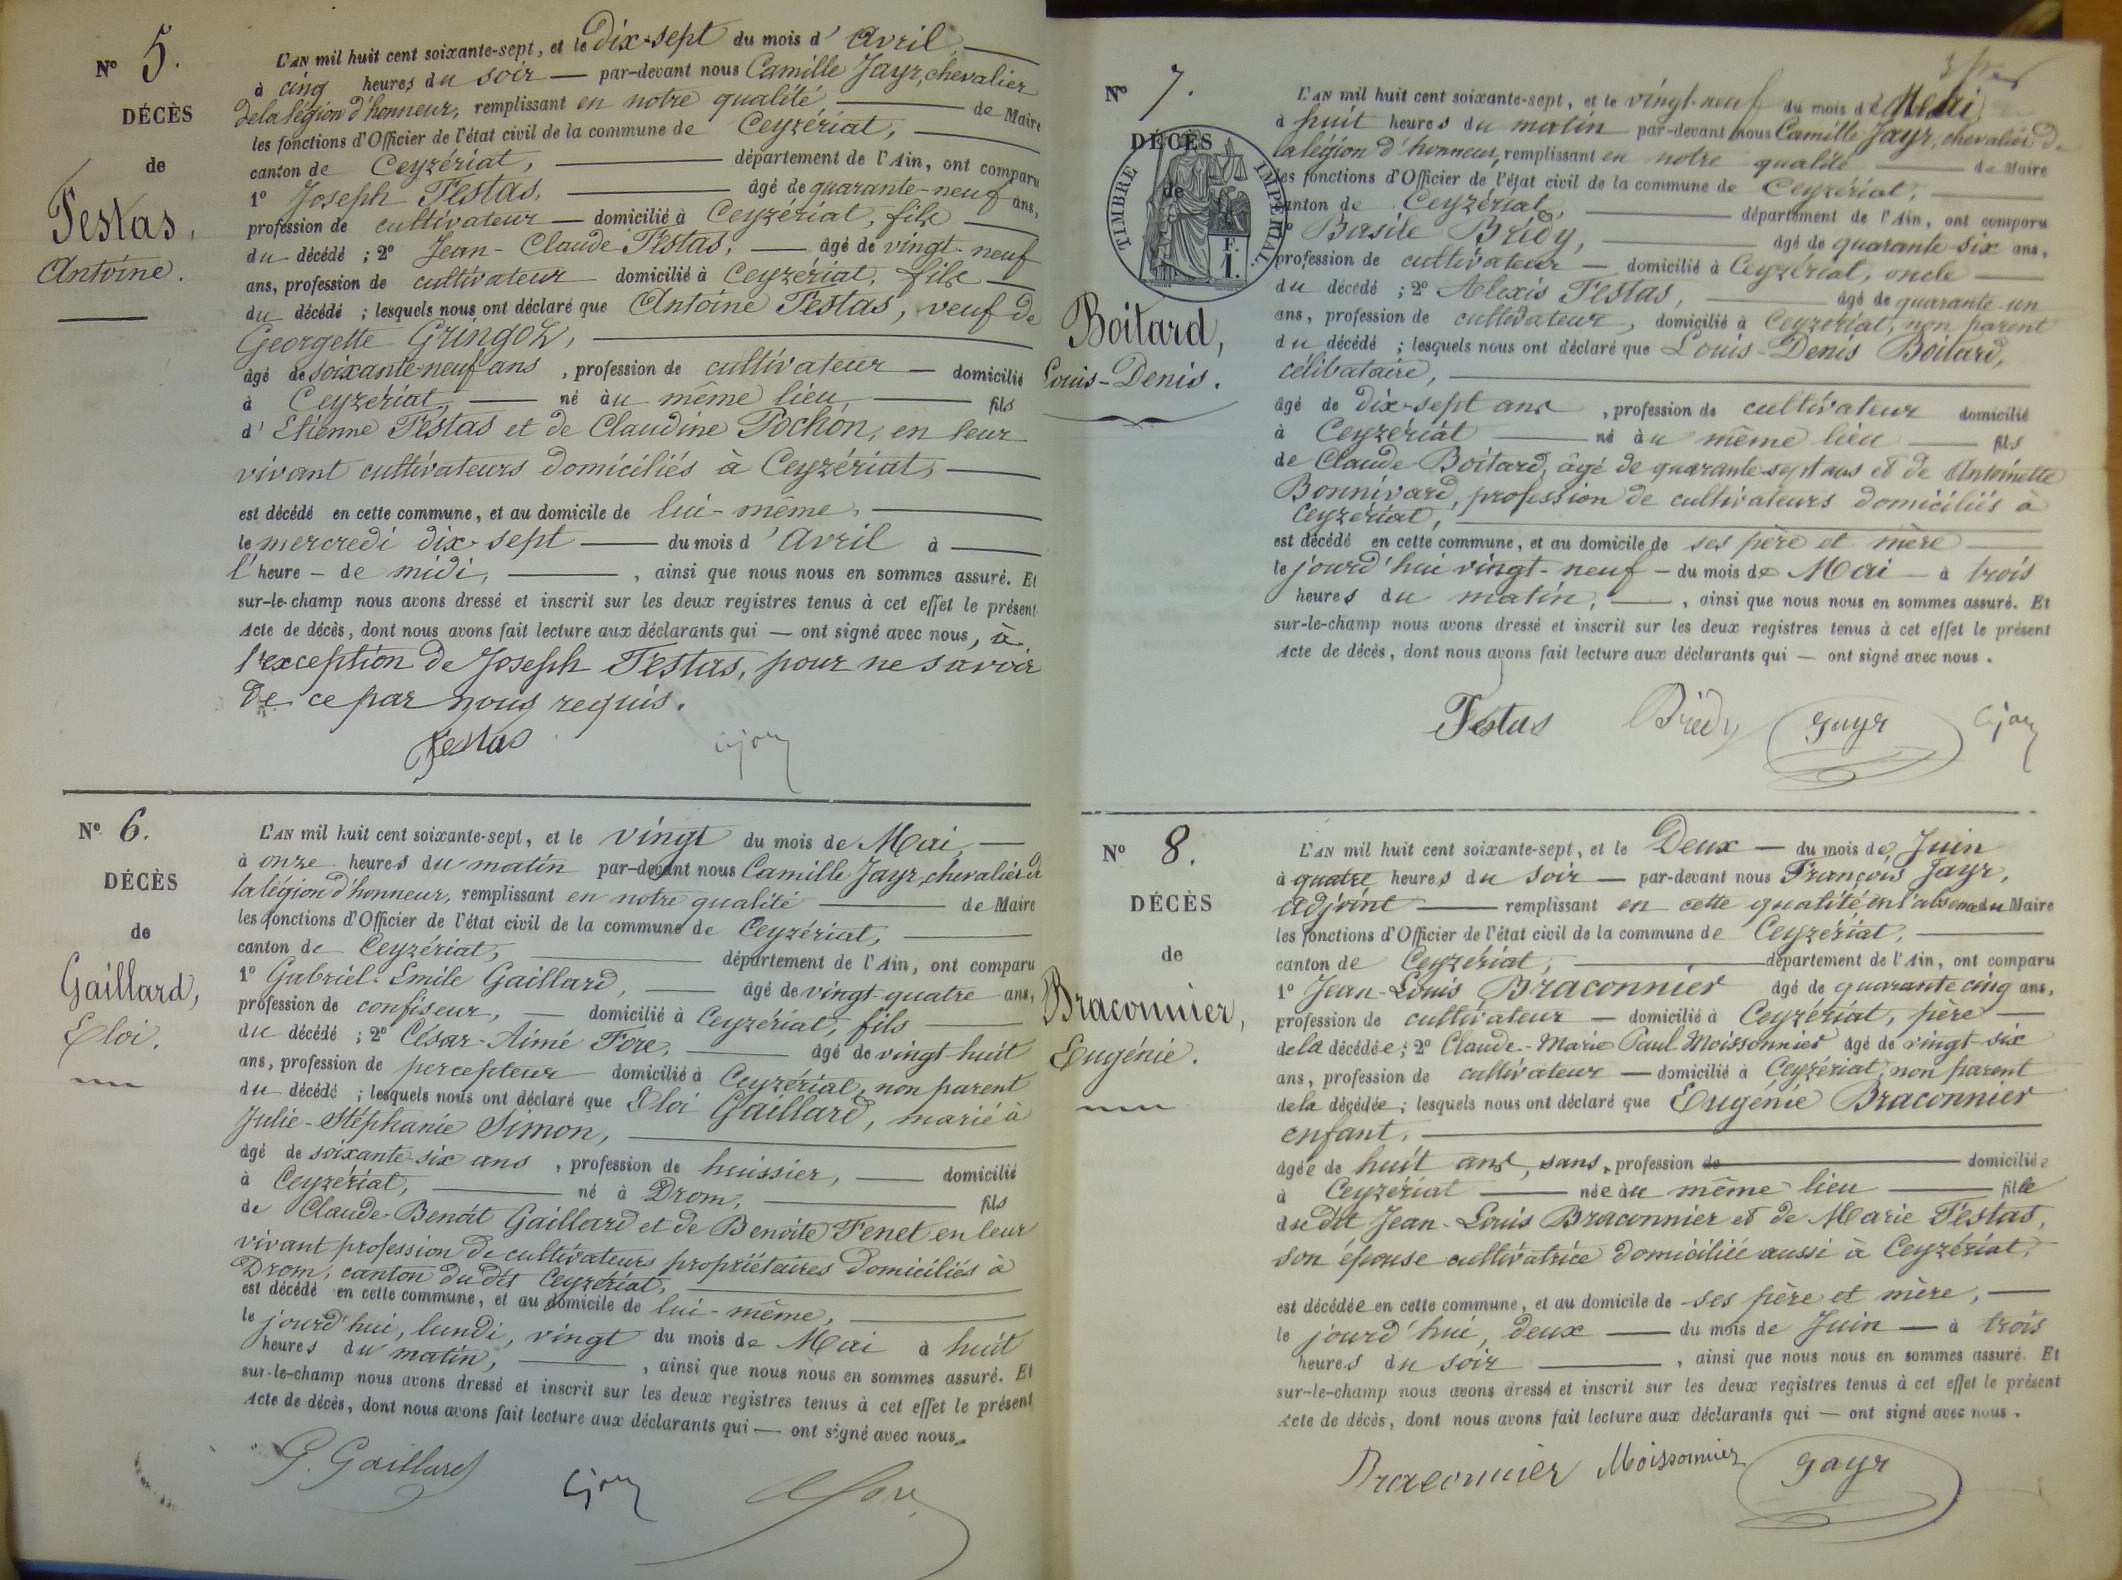 N° 5.
DÉCÈS
de
Testas,
Antoine.
L'AN mil huit cent soixante-sept, et le Dix-sept du mois d'Avril
à cinq heures du soir — par-devant nous Camille Jayr, chevalier
de la légion d'honneur, remplissant en notre qualité — de Maire
les fonctions d'Officier de l'état civil de la commune de Ceyzériat,
canton de Ceyzériat, — département de l'Ain, ont comparu
1° Joseph Testas, — âgé de quarante-neuf ans,
profession de cultivateur — domicilié à Ceyzériat, fils
du décédé ; 2° Jean-Claude Testas, — âgé de vingt-neuf
ans, profession de cultivateur domicilié à Ceyzériat, fils
du décédé ; lesquels nous ont déclaré que Antoine Testas, veuf de
Georgette Gringoz,
âgé de soixante-neuf ans, profession de cultivateur — domicilié
à Ceyzériat, — né au même lieu, — fils
d'Etienne Testas et de Claudine Pochon, en leur
vivant cultivateurs domiciliés à Ceyzériat,
est décédé en cette commune, et au domicile de lui-même,
le mercredi dix-sept — du mois d'Avril à
l'heure — de midi, — , ainsi que nous nous en sommes assuré. Et
sur-le-champ nous avons dressé et inscrit sur les deux registres tenus à cet effet le présent
Acte de décès, dont nous avons fait lecture aux déclarants qui — ont signé avec nous, à
l'exception de Joseph Testas, pour ne savoir
de ce par nous requis.
Testas
N° 6.
DÉCÈS
de
Gaillard,
Eloi.
L'AN mil huit cent soixante-sept, et le vingt du mois de Mai,
à onze heures du matin par-devant nous Camille Jayr, chevalier de
la légion d'honneur, remplissant en notre qualité — de Maire
les fonctions d'Officier de l'état civil de la commune de Ceyzériat,
canton de Ceyzériat, — département de l'Ain, ont comparu
1° Gabriel-Emile Gaillard, — âgé de vingt-quatre ans,
profession de confiseur, — domicilié à Ceyzériat, fils
du décédé ; 2° César-Aimé Fore, — âgé de vingt-huit
ans, profession de percepteur domicilié à Ceyzériat, non parent
du décédé ; lesquels nous ont déclaré que Eloi Gaillard, marié à
Julie-Stéphanie Simon,
âgé de soixante-six ans, profession de huissier, — domicilié
à Ceyzériat, — né à Drom, — fils
de Claude-Benoit Gaillard et de Benoite Fenet en leur
vivant profession de cultivateurs propriétaires domiciliés à
Drom, canton du dit Ceyzériat,
est décédé en cette commune, et au domicile de lui-même,
le jourd'hui, lundi, vingt du mois de Mai à huit
heures du matin, — , ainsi que nous nous en sommes assuré. Et
sur-le-champ nous avons dressé et inscrit sur les deux registres tenus à cet effet le présent
Acte de décès, dont nous avons fait lecture aux déclarants qui — ont signé avec nous.
G. Gaillard
N° 7.
DÉCÈS
de
TIMBRE IMPÉRIAL
F.
1.
Boitard,
Louis-Denis.
L'AN mil huit cent soixante-sept, et le vingt-neuf du mois de Mai
à huit heures du matin par-devant nous Camille Jayr, chevalier de
la légion d'honneur, remplissant en notre qualité — de Maire
les fonctions d'Officier de l'état civil de la commune de Ceyzériat,
canton de Ceyzériat, — département de l'Ain, ont comparu
1° Basile Brédy, — âgé de quarante-six ans,
profession de cultivateur — domicilié à Ceyzériat, oncle
du décédé ; 2° Alexis Testas, — âgé de quarante-un
ans, profession de cultivateur, domicilié à Ceyzériat, non parent
du décédé ; lesquels nous ont déclaré que Louis-Denis Boitard,
célibataire,
âgé de dix-sept ans, profession de cultivateur domicilié
à Ceyzériat — né au même lieu — fils
de Claude Boitard, âgé de quarante-sept ans et de Antoinette
Bonnivard, profession de cultivateurs domiciliés à
Ceyzériat,
est décédé en cette commune, et au domicile de ses père et mère
le jourd'hui vingt-neuf — du mois de Mai — à trois
heures du matin, — , ainsi que nous nous en sommes assuré. Et
sur-le-champ nous avons dressé et inscrit sur les deux registres tenus à cet effet le présent
Acte de décès, dont nous avons fait lecture aux déclarants qui — ont signé avec nous.
Testas Brédy Jayr
N° 8.
DÉCÈS
de
Braconnier,
Eugénie.
L'AN mil huit cent soixante-sept, et le Deux — du mois de Juin
à quatre heures du soir — par-devant nous François Jayr,
Adjoint — remplissant en cette qualité en l'absence du Maire
les fonctions d'Officier de l'état civil de la commune de Ceyzériat,
canton de Ceyzériat, — département de l'Ain, ont comparu
1° Jean-Louis Braconnier âgé de quarante cinq ans,
profession de cultivateur — domicilié à Ceyzériat, père
de la décédée ; 2° Claude-Marie Paul Moissonnier âgé de vingt-six
ans, profession de cultivateur — domicilié à Ceyzériat, non parent
de la décédée ; lesquels nous ont déclaré que Eugénie Braconnier
enfant,
âgée de huit ans, sans profession de — domiciliée
à Ceyzériat — née au même lieu — fille
du dit Jean-Louis Braconnier et de Marie Testas,
son épouse cultivatrice domiciliée aussi à Ceyzériat,
est décédée en cette commune, et au domicile de ses père et mère,
le jourd'hui, deux — du mois de Juin — à trois
heures du soir — , ainsi que nous nous en sommes assuré. Et
sur-le-champ nous avons dressé et inscrit sur les deux registres tenus à cet effet le présent
Acte de décès, dont nous avons fait lecture aux déclarants qui — ont signé avec nous.
Braconnier Moissonnier Jayr